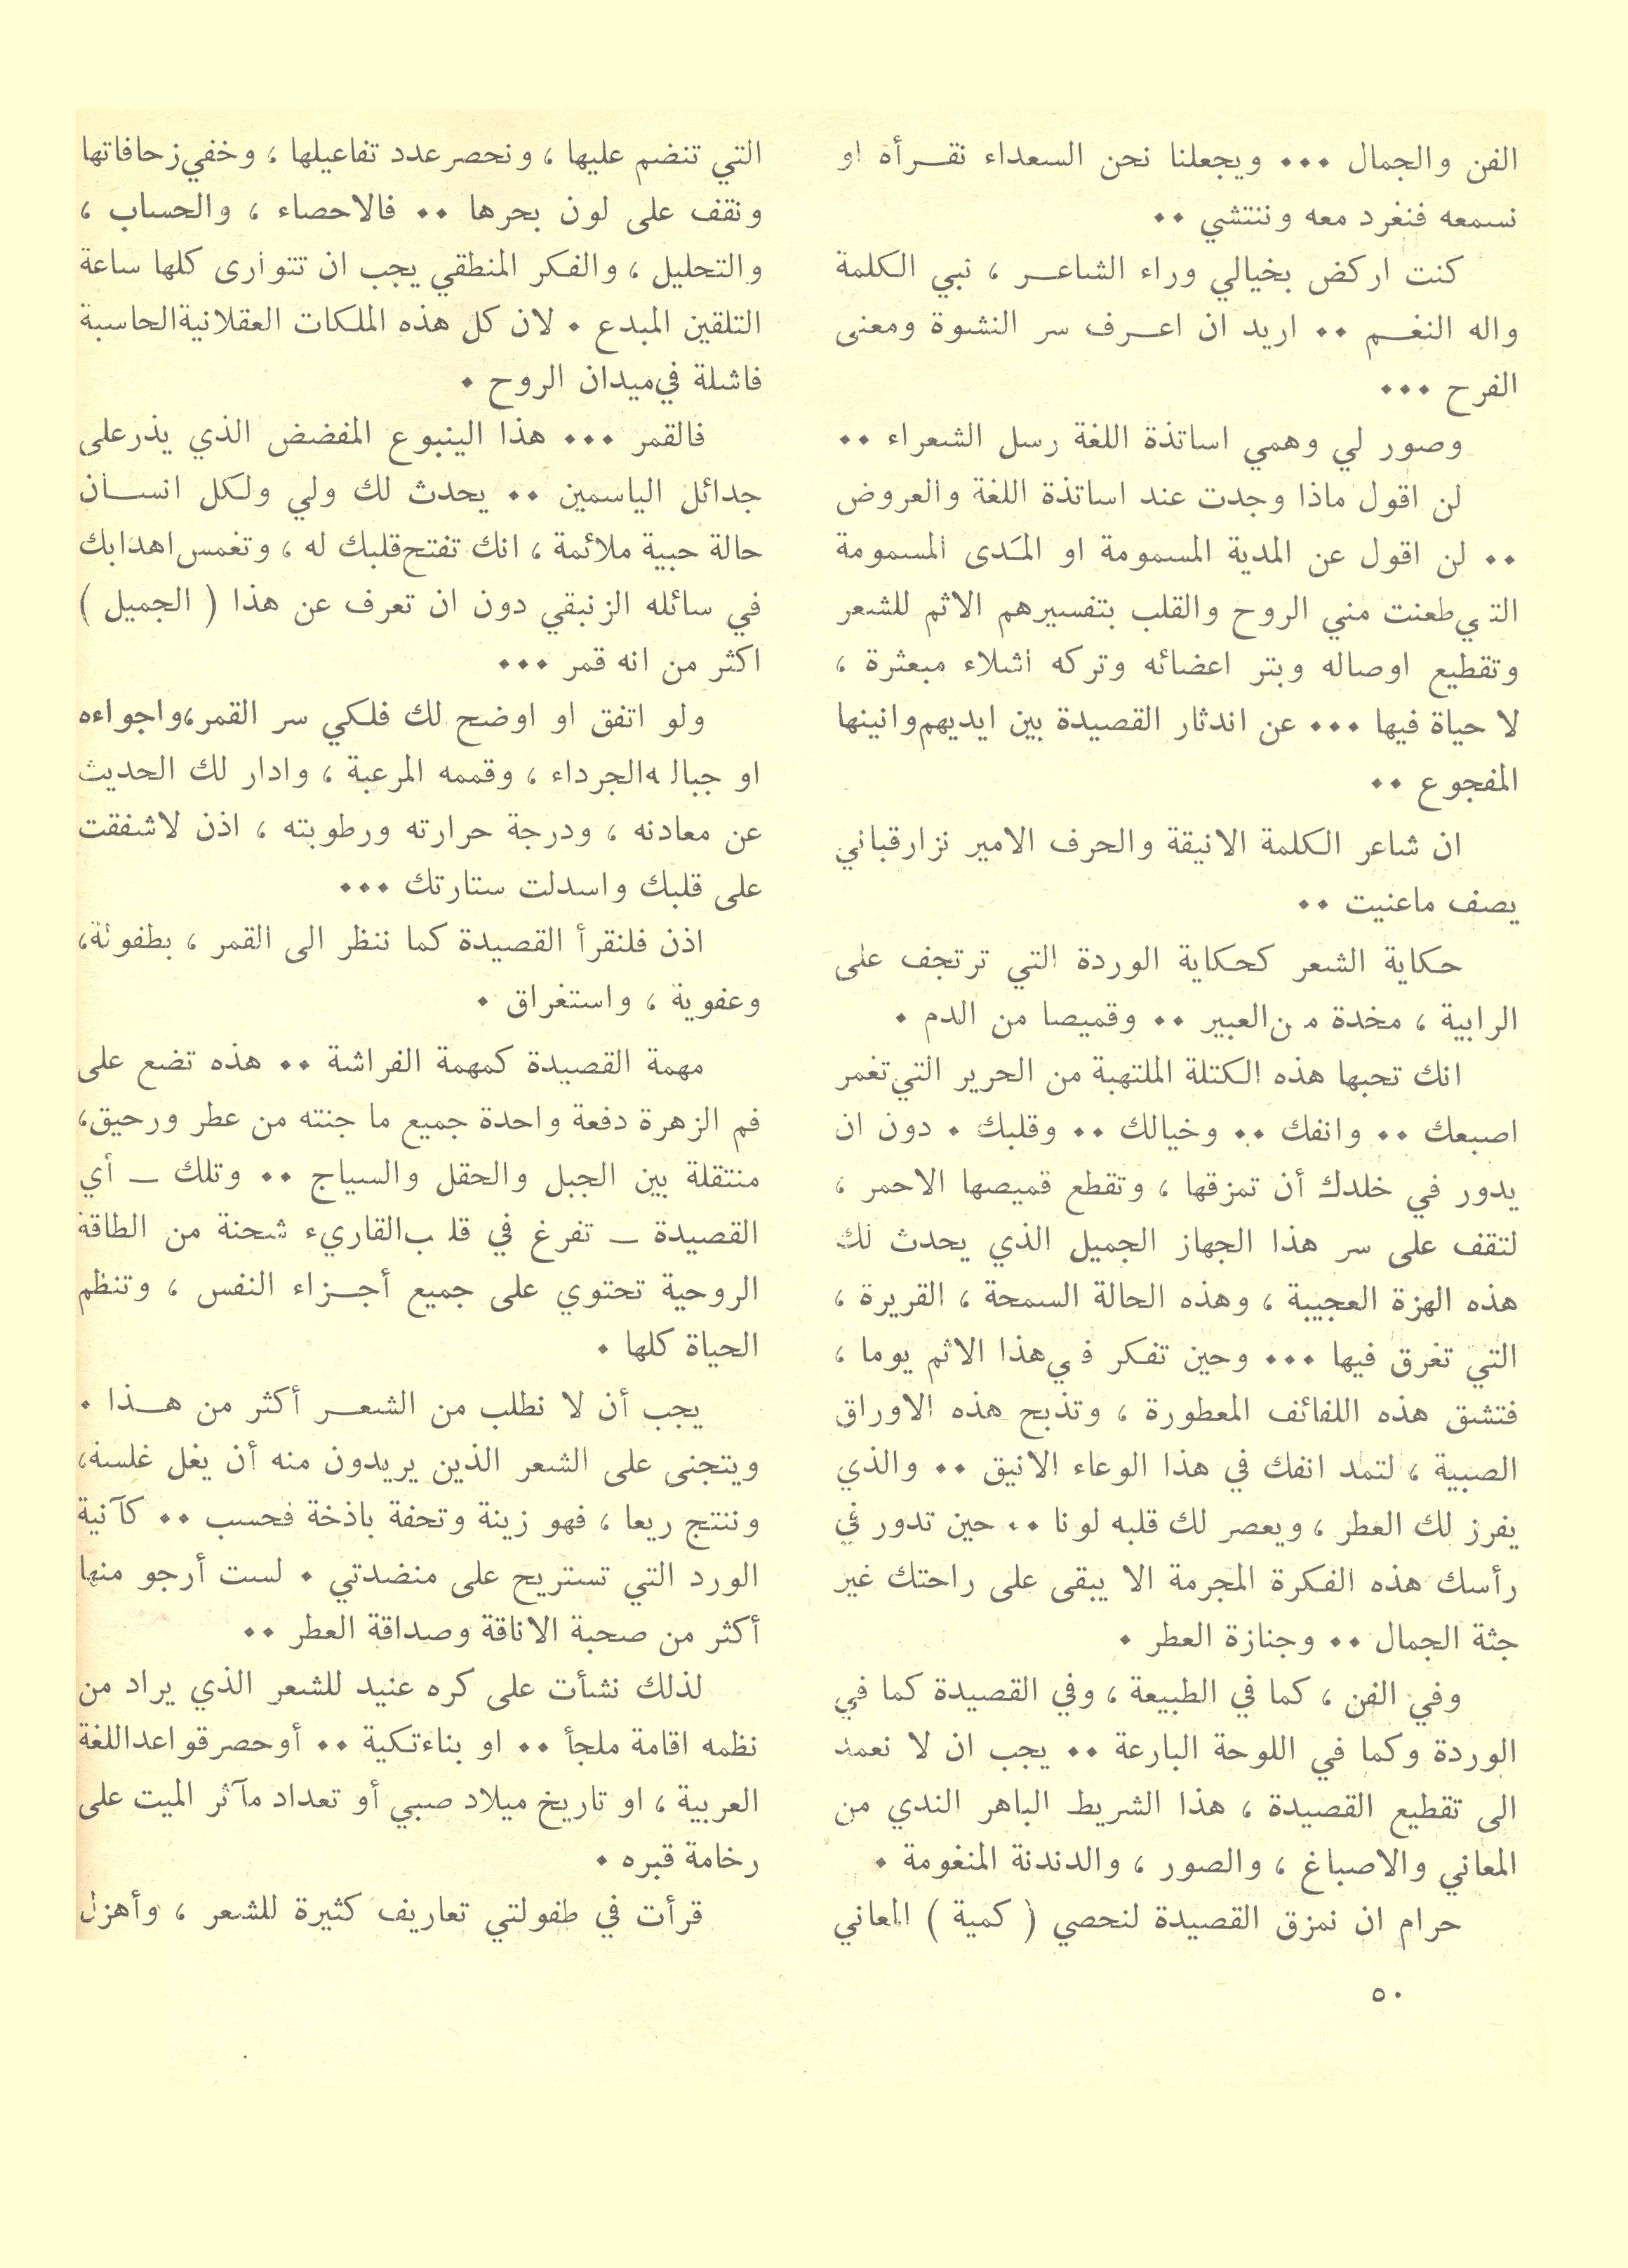 الفن والجمال ••• ويجعلنا نحن السعداء نقـرأه او
نسمعه فنغرد معه وننتشي ••
كنت اركض بخيالي وراء الشاعـر ، نبي الكلمة
واله النغـم •• اريد ان اعـرف سر النشوة ومعنى
الفرح •••
وصور لي وهمي اساتذة اللغة رسل الشعراء ••
لن اقول ماذا وجدت عند اساتذة اللغة والعروض
•• لن اقول عن المدية المسمومة او المَدى المسمومة
التي طعنت مني الروح والقلب بتفسيرهم الاثم للشعر
وتقطيع اوصاله وبتر اعضائه وتركه اشلاء مبعثرة ،
لا حياة فيها ••• عن اندثار القصيدة بين ايديهم وانينها
المفجوع ••
ان شاعر الكلمة الانيقة والحرف الامير نزار قباني
يصف ماعنيت ••
حكاية الشعر كحكاية الوردة التي ترتجف على
الرابية ، مخدة من العبير •• وقميصا من الدم •
انك تحبها هذه الكتلة الملتهبة من الحرير التي تغمر
اصبعك •• وانفك •• وخيالك •• وقلبك • دون ان
يدور في خلدك أن تمزقها ، وتقطع قميصها الاحمر ،
لتقف على سر هذا الجهاز الجميل الذي يحدث لك
هذه الهزة العجيبة ، وهذه الحالة السمحة ، القريرة ،
التي تغرق فيها ••• وحين تفكر في هذا الاثم يوما ،
فتشق هذه اللفائف المعطورة ، وتذبح هذه الاوراق
الصبية ، لتمد انفك في هذا الوعاء الانيق •• والذي
يفرز لك العطر ، ويعصر لك قلبه لونا •• حين تدور في
رأسك هذه الفكرة المجرمة الا يبقى على راحتك غير
جثة الجمال •• وجنازة العطر •
وفي الفن ، كما في الطبيعة ، وفي القصيدة كما في
الوردة وكما في اللوحة البارعة •• يجب ان لا نعمد
الى تقطيع القصيدة ، هذا الشريط الباهر الندي من
المعاني والاصباغ ، والصور ، والدندنة المنغومة •
حرام ان نمزق القصيدة لنحصي ( كمية ) المعاني
التي تنضم عليها ، ونحصر عدد تفاعيلها ، وخفي زحافاتها
ونقف على لون بحرها •• فالاحصاء ، والحساب ،
والتحليل ، والفكر المنطقي يجب ان تتوارى كلها ساعة
التلقين المبدع • لان كل هذه الملكات العقلانية الحاسبة
فاشلة في ميدان الروح •
فالقمر ••• هذا الينبوع المفضض الذي يذر على
جدائل الياسمين •• يحدث لك ولي ولكل انسـان
حالة حبية ملائمة ، انك تفتح قلبك له ، وتغمس اهدابك
في سائله الزنبقي دون ان تعرف عن هذا ( الجميل )
اكثر من انه قمر •••
ولو اتفق او اوضح لك فلكي سر القمر ، واجواءه
او جباله الجرداء ، وقممه المرعبة ، وادار لك الحديث
عن معادنه ، ودرجة حرارته ورطوبته ، اذن لاشفقت
على قلبك واسدلت ستارتك •••
اذن فلنقرأ القصيدة كما ننظر الى القمر ، بطفولة ،
وعفوية ، واستغراق •
مهمة القصيدة كمهمة الفراشة •• هذه تضع على
فم الزهرة دفعة واحدة جميع ما جنته من عطر ورحيق ،
منتقلة بين الجبل والحقل والسياج •• وتلك – أي
القصيدة – تفرغ في قلب القاريء شحنة من الطاقة
الروحية تحتوي على جميع أجـزاء النفس ، وتنظم
الحياة كلها •
يجب أن لا نطلب من الشعـر أكثر من هـذا •
ويتجنى على الشعر الذين يريدون منه أن يغل غلسة ،
وننتج ريعا ، فهو زينة وتحفة باذخة فحسب •• كآنية
الورد التي تستريح على منضدتي • لست أرجو منها
أكثر من صحبة الاناقة وصداقة العطر ••
لذلك نشأت على كره عنيد للشعر الذي يراد من
نظمه اقامة ملجأ •• او بناء تكية •• أو حصر قواعد اللغة
العربية ، او تاريخ ميلاد صبي أو تعداد مآثر الميت على
رخامة قبره •
قرأت في طفولتي تعاريف كثيرة للشعر ، وأهزل
٥٠